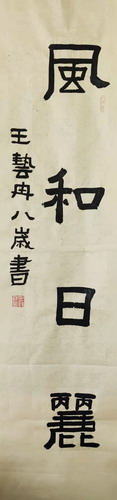 風和日麗
王藝冉八歲書